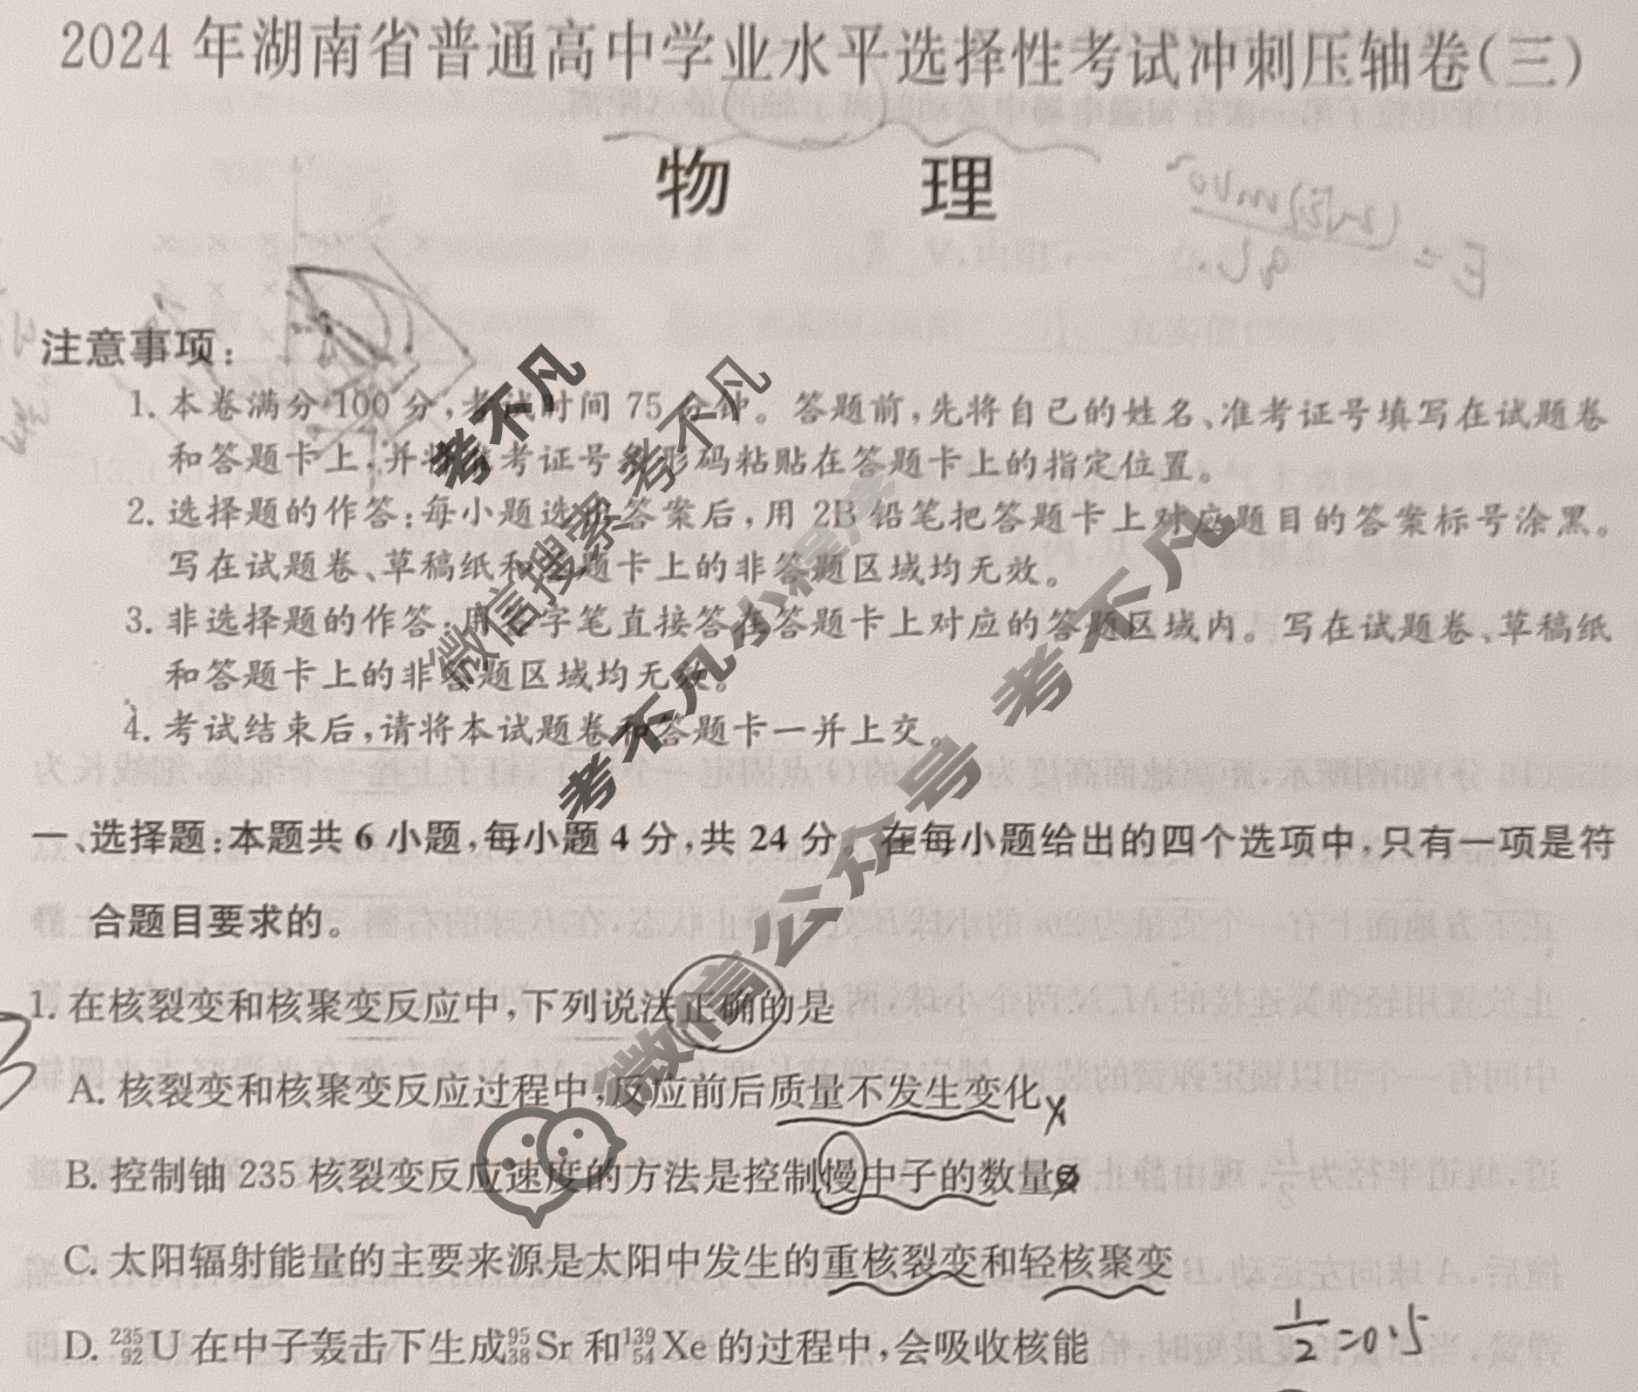 2024年湖南省普通高中学业水平选择性考试冲刺压轴卷(三)
物 理
注意事项:
1. 本卷满分100分,考试时间75分钟。答题前,先将自己的姓名、准考证号填写在试题卷
和答题卡上,并将准考证号条形码粘贴在答题卡上的指定位置。
2. 选择题的作答:每小题选出答案后,用2B铅笔把答题卡上对应题目的答案标号涂黑。
写在试题卷、草稿纸和答题卡上的非答题区域均无效。
3. 非选择题的作答:用签字笔直接答在答题卡上对应的答题区域内。写在试题卷、草稿纸
和答题卡上的非答题区域均无效。
4. 考试结束后,请将本试题卷和答题卡一并上交。
一、选择题:本题共6小题,每小题4分,共24分。在每小题给出的四个选项中,只有一项是符
合题目要求的。
1. 在核裂变和核聚变反应中,下列说法正确的是
A. 核裂变和核聚变反应过程中,反应前后质量不发生变化
B. 控制铀235核裂变反应速度的方法是控制慢中子的数量
C. 太阳辐射能量的主要来源是太阳中发生的重核裂变和轻核聚变
D. ²³⁵₉₂U在中子轰击下生成⁹⁵₃₈Sr和¹³⁹₅₄Xe的过程中,会吸收核能
1/2=0.5
考不凡
微信搜索 考不凡
考不凡小程序
微信公众号 考不凡